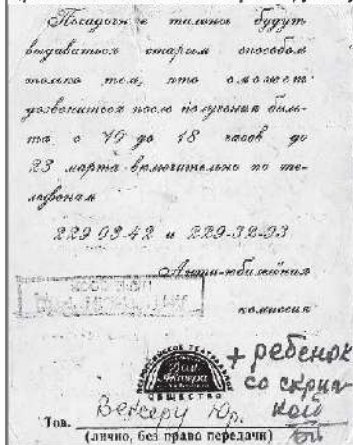 Посадочные талоны будут
выдаваться старым способом
только тем, кто сможет
дозвониться после получения биле-
та с 10 до 18 часов до
23 марта включительно по те-
лефонам
229-03-42 и 229-32-93
Анти-юбилейная
комиссия
ТЕАТРАЛЬНОЕ
Дом Актера
ОБЩЕСТВО
+ ребенок
со скрип-
кой
Тов. Венгеру Ю.
(лично, без права передачи)